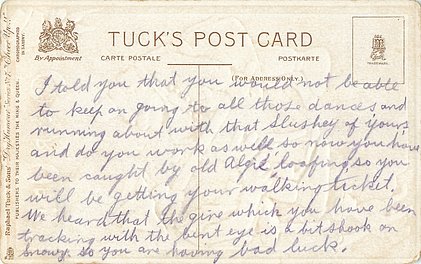 TUCK'S POST CARD
By Appointment
CARTE POSTALE
POSTKARTE
(FOR ADDRESS ONLY.)
TRADE MARK
Raphael Tuck & Sons'
PUBLISHERS TO THEIR MAJESTIES THE KING & QUEEN.
I told you that you would not be able
to keep on going to all those dances and
running about with that Slushey of yours
and do you work as well so now you have
been caught by old Algie loafing, so you
will be getting your walking ticket.
We heard that the gire which you have been
tracking with the bent eye is a bit shook on
Snowy. So you are having bad luck.